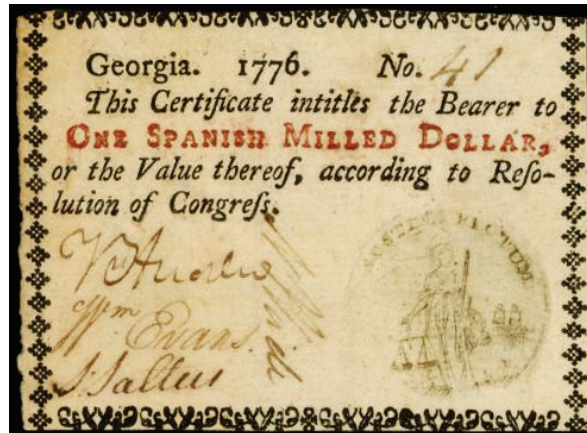 Georgia. 1776. No. 41
This Certificate intitles the Bearer to
ONE SPANISH MILLED DOLLAR,
or the Value thereof, according to Reſo-
lution of Congreſs.
Wm Evans
S Saltus